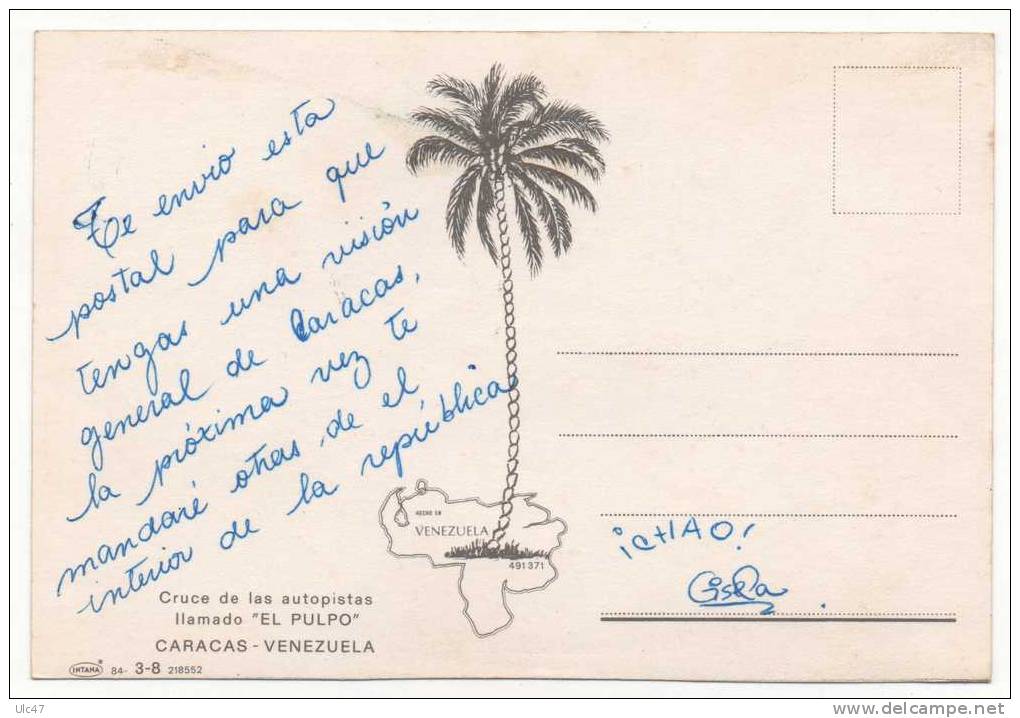 Te envio esta
postal para que
tengas una visión
general de Caracas,
la próxima vez te
mandaré otras, de el,
interior de la república
HECHO EN
VENEZUELA
491371
Cruce de las autopistas
llamado "EL PULPO"
CARACAS - VENEZUELA
INTANA 84- 3-8 218552
¡CHAO!
Gisela
Ulc47
delcampe.net